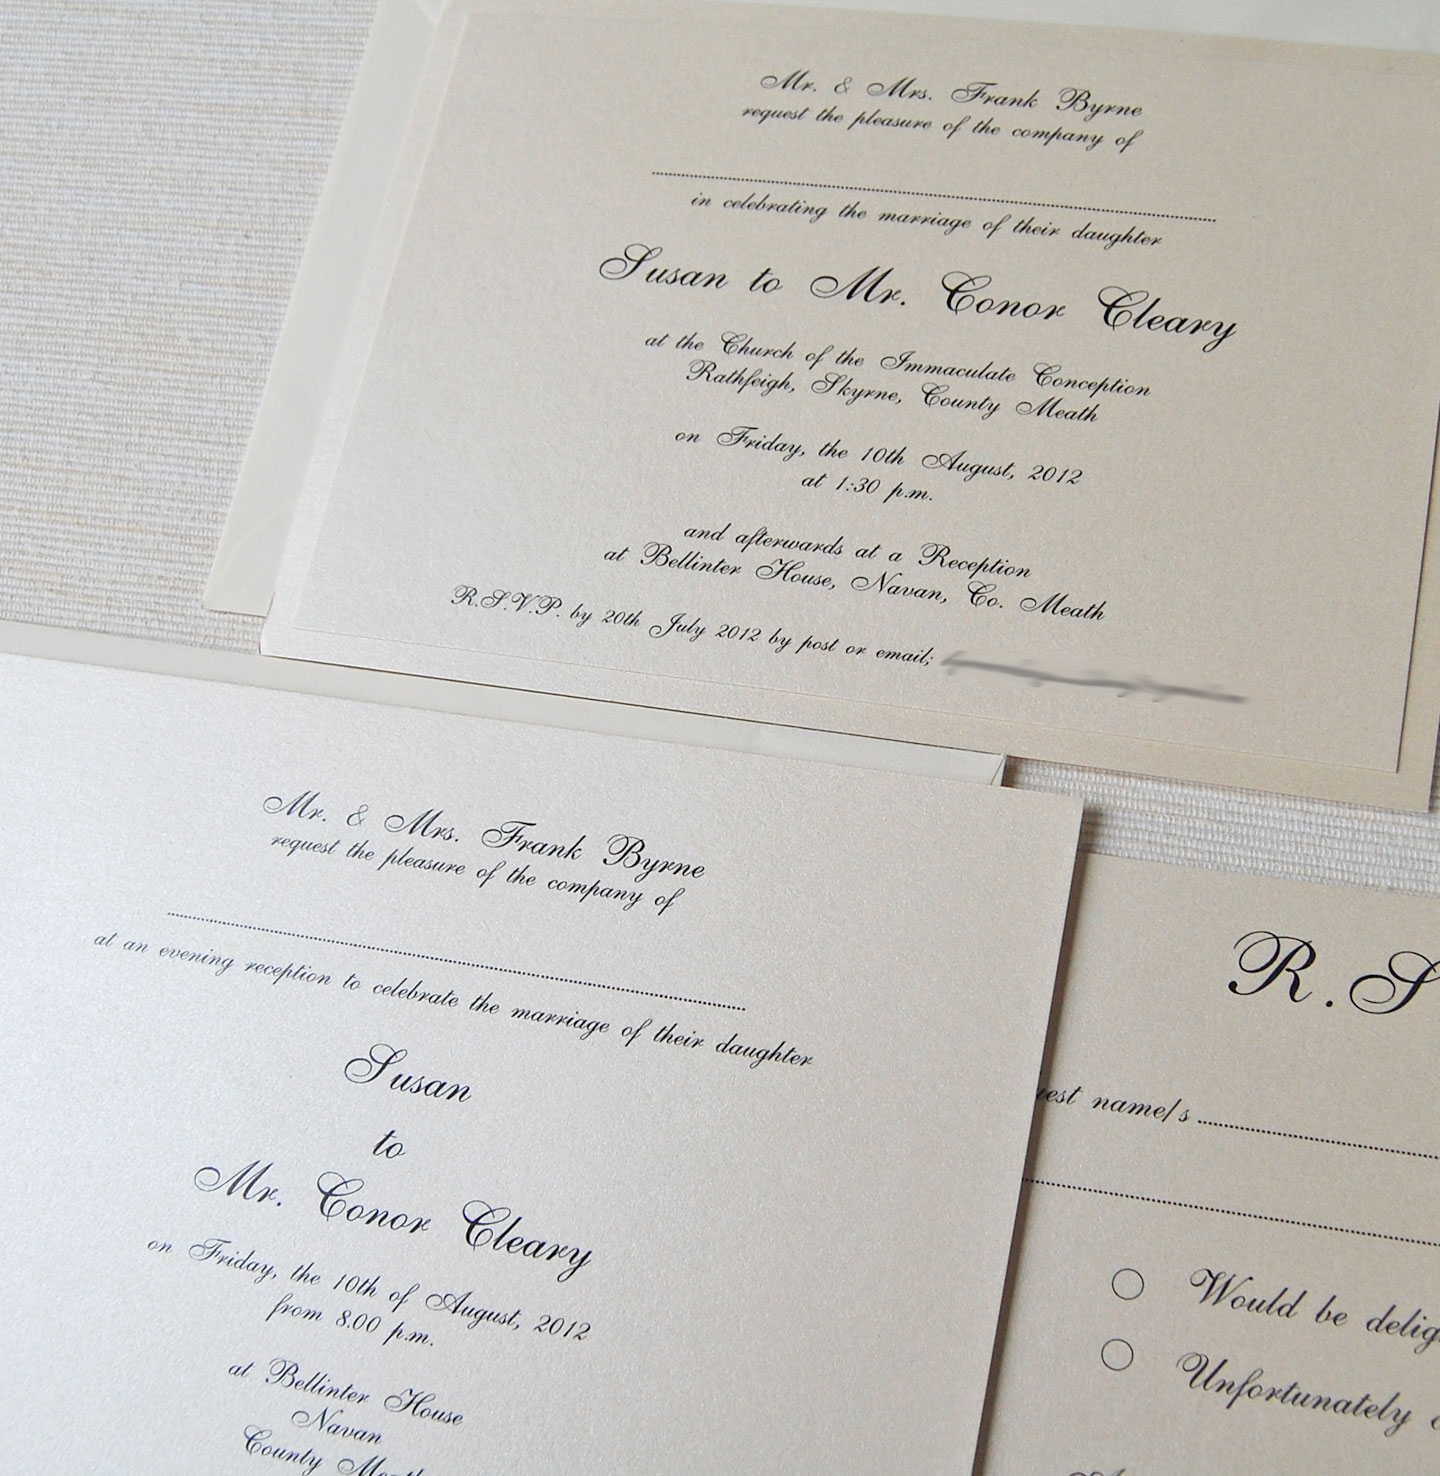 Mr. & Mrs. Frank Byrne
request the pleasure of the company of
in celebrating the marriage of their daughter
Susan to Mr. Conor Cleary
at the Church of the Immaculate Conception
Rathfeigh, Skyrne, County Meath
on Friday, the 10th August, 2012
at 1:30 p.m.
and afterwards at a Reception
at Bellinter House, Navan, Co. Meath
R.S.V.P. by 20th July 2012 by post or email;
Mr. & Mrs. Frank Byrne
request the pleasure of the company of
at an evening reception to celebrate the marriage of their daughter
Susan
to
Mr. Conor Cleary
on Friday, the 10th of August, 2012
from 8.00 p.m.
at Bellinter House
Navan
County Meath
R.S
name/s
Would be
Unfortunately